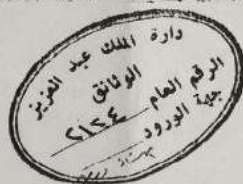 دارة الملك عبد العزيز
الوثائق
الرقم العام ٢١٢٤
جهة الورود